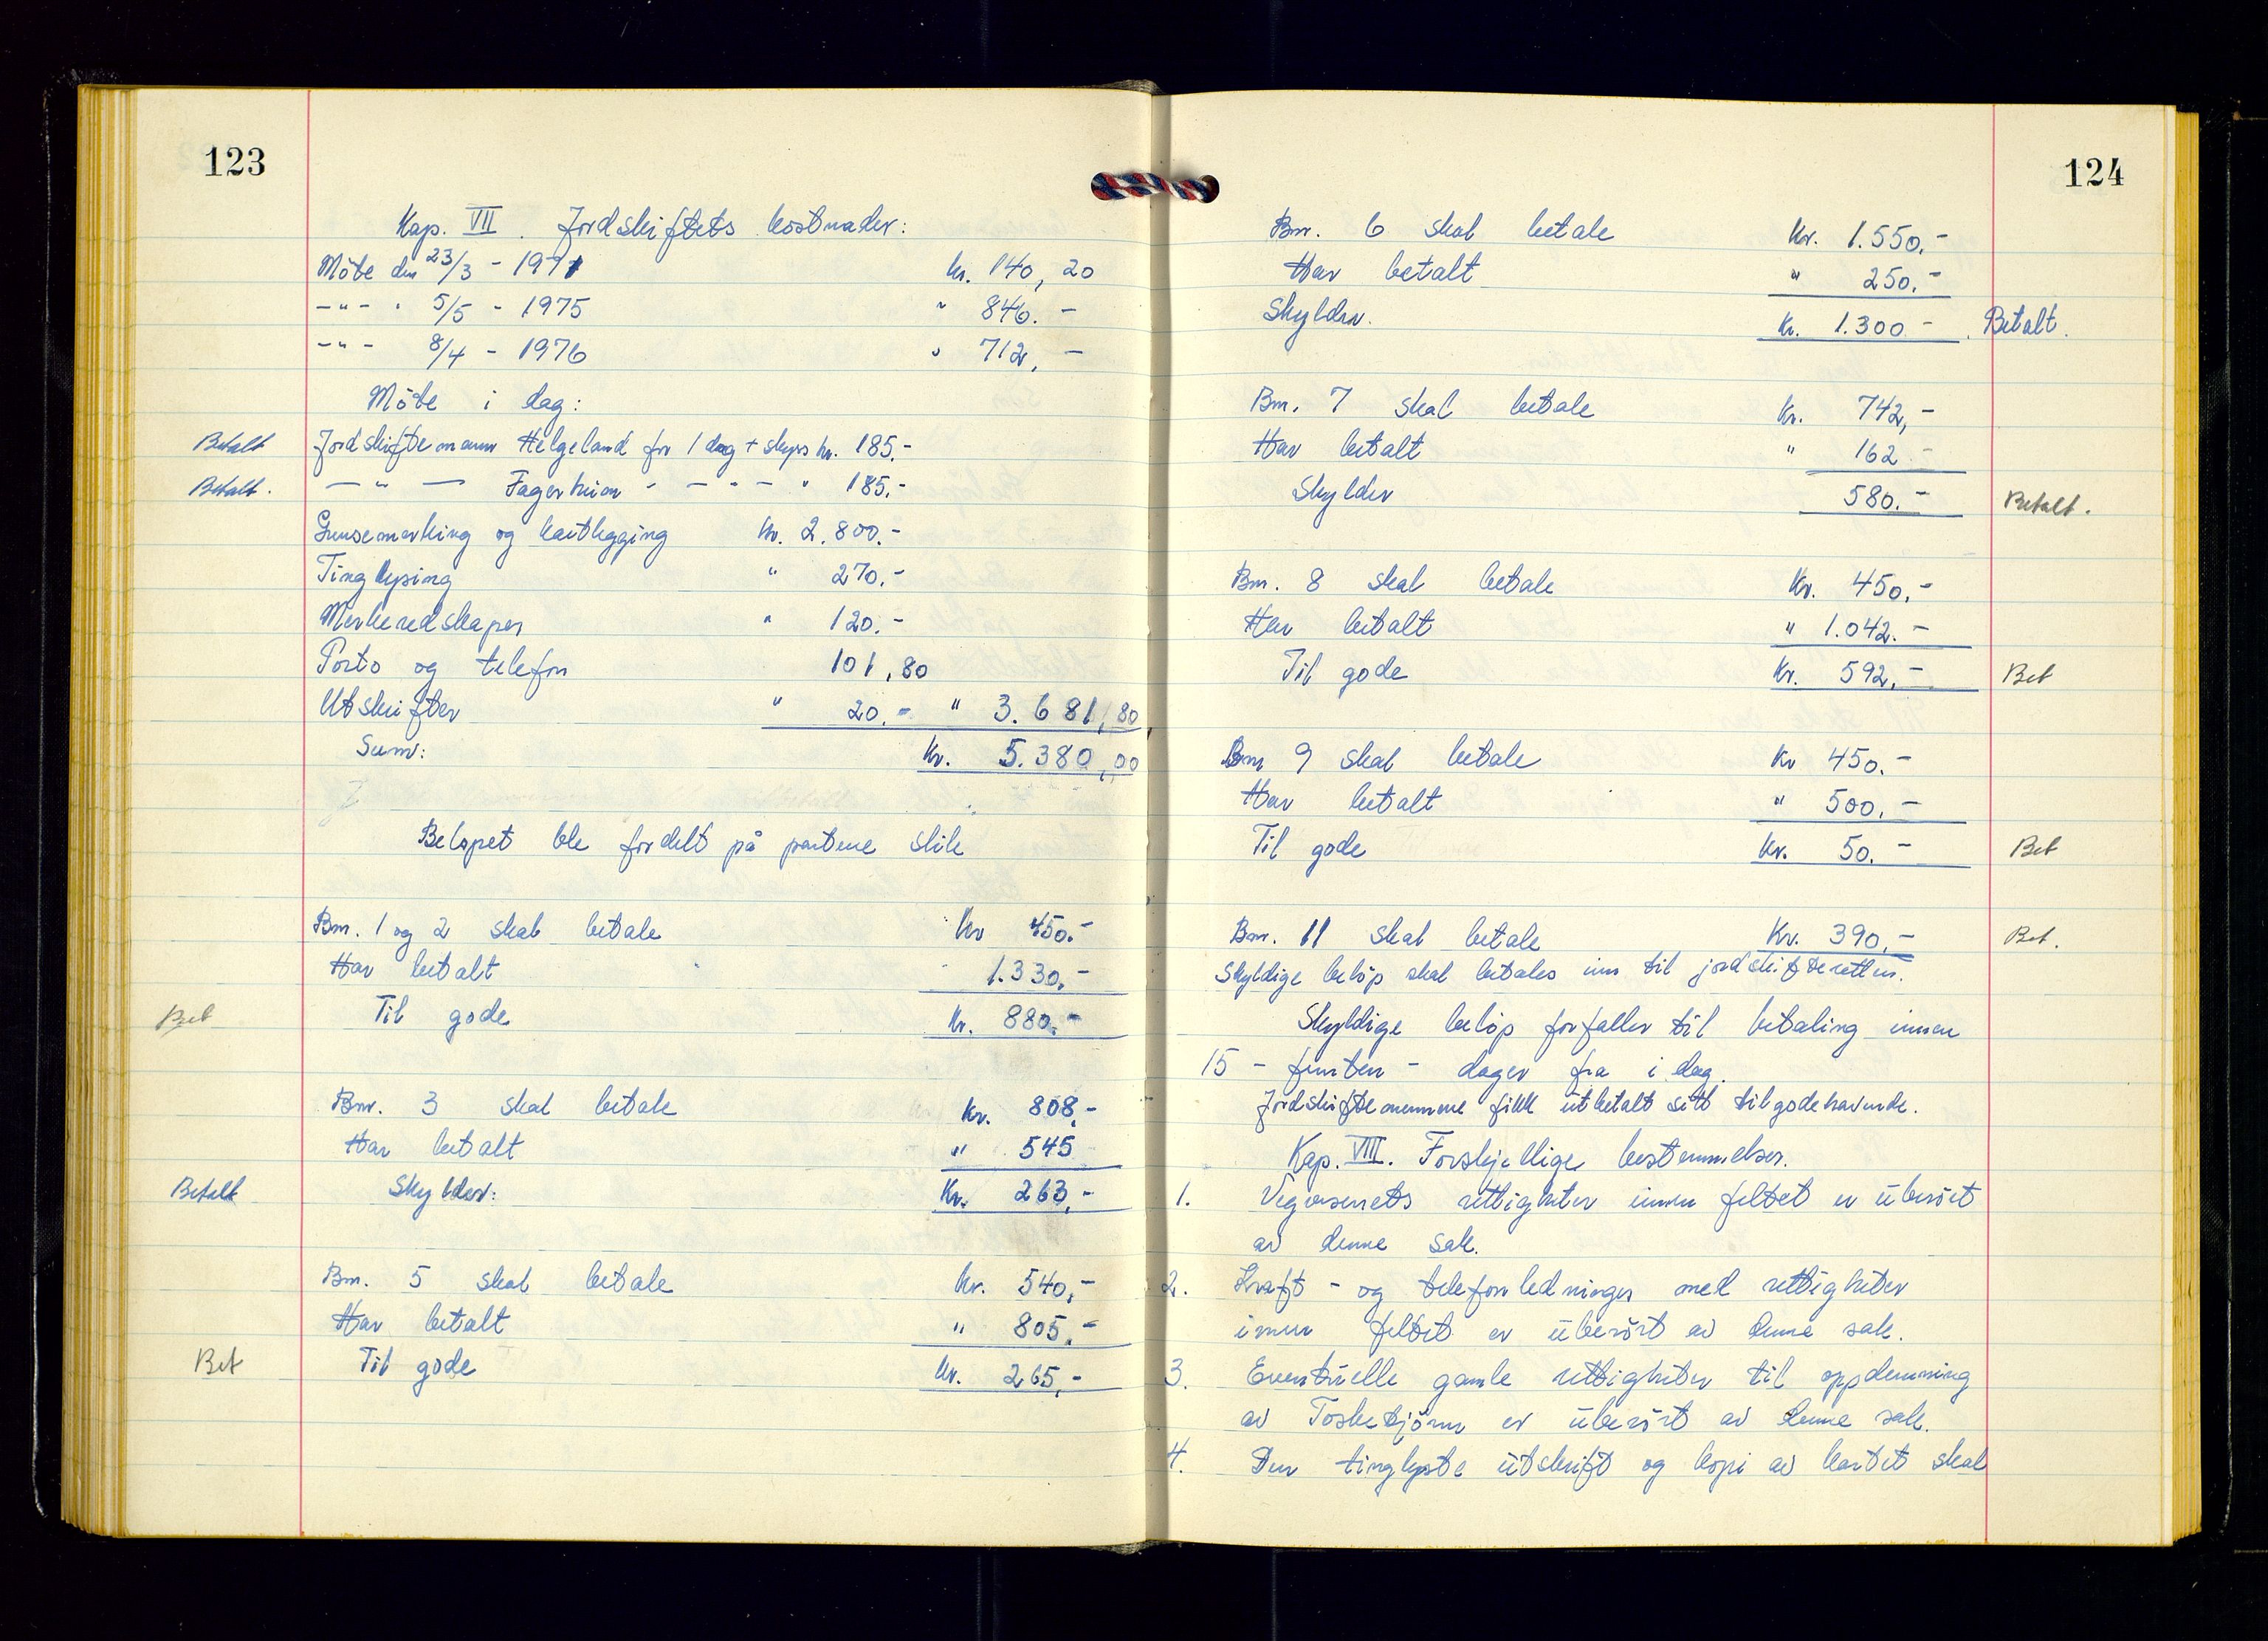 123
Kap. VII. Jordskiftets kostnader:
Möte den 23/3 - 1971 kr. 140,20
-"- " 5/5 - 1975 " 846.-
-"- 8/4 - 1976 " 712,-
Möte i dag:
Betalt Jordskiftemann Helgeland for 1 dag + skyss kr. 185.-
Betalt. -"- Fagerheim - - " - " 185.-
Grensemerking og kartlegging kr. 2.800.-
Tinglysing " 270.-
Merkeredskaper " 120.-
Porto og telefon 101,80
Utskrifter " 20.- " 3.681,80
Sum: Kr. 5.380,00
Beløpet ble fordelt på partene slik
Bnr. 1 og 2 skal betale kr 450.-
Har betalt 1.330.-
Bet Til gode kr. 880.-
Bnr. 3 skal betale kr. 808,-
Har betalt " 545
Betalt Skylder: Kr. 263,-
Bnr. 5 skal betale kr. 540,-
Har betalt " 805,-
Bet Til gode kr. 265,-
124
Bnr. 6 skal betale Kr. 1.550,-
Har betalt " 250.-
Skylder. Kr. 1.300.- Betalt.
Bnr. 7 skal betale Kr. 742,-
Har betalt " 162 -
Skylder 580.- Betalt.
Bnr. 8 skal betale Kr. 450,-
Har betalt " 1.042.-
Til gode Kr. 592,- Bet
Bnr 9 skal betale Kr 450.-
Har betalt " 500,-
Til gode Kr. 50.- Bet
Bnr. 11 skal betale Kr. 390,- Bet.
Skyldige beløp skal betales inn til jordskifteretten.
Skyldige beløp forfaller til betaling innen
15 - femten - dager fra i dag.
Jordskiftemennene fikk utbetalt sitt tilgodehavende.
Kap. VIII. Forskjellige bestemmelser.
1. Vegvesenets rettigheter innen feltet er uberört
av denne sak.
2. Kraft - og telefonledninger med rettigheter
innen feltet er uberört av denne sak.
3. Eventuelle gamle rettigheter til oppdemning
av Tosketjönn er uberört av denne sak.
4. Den tinglyste utskrift og kopi av kartet skal